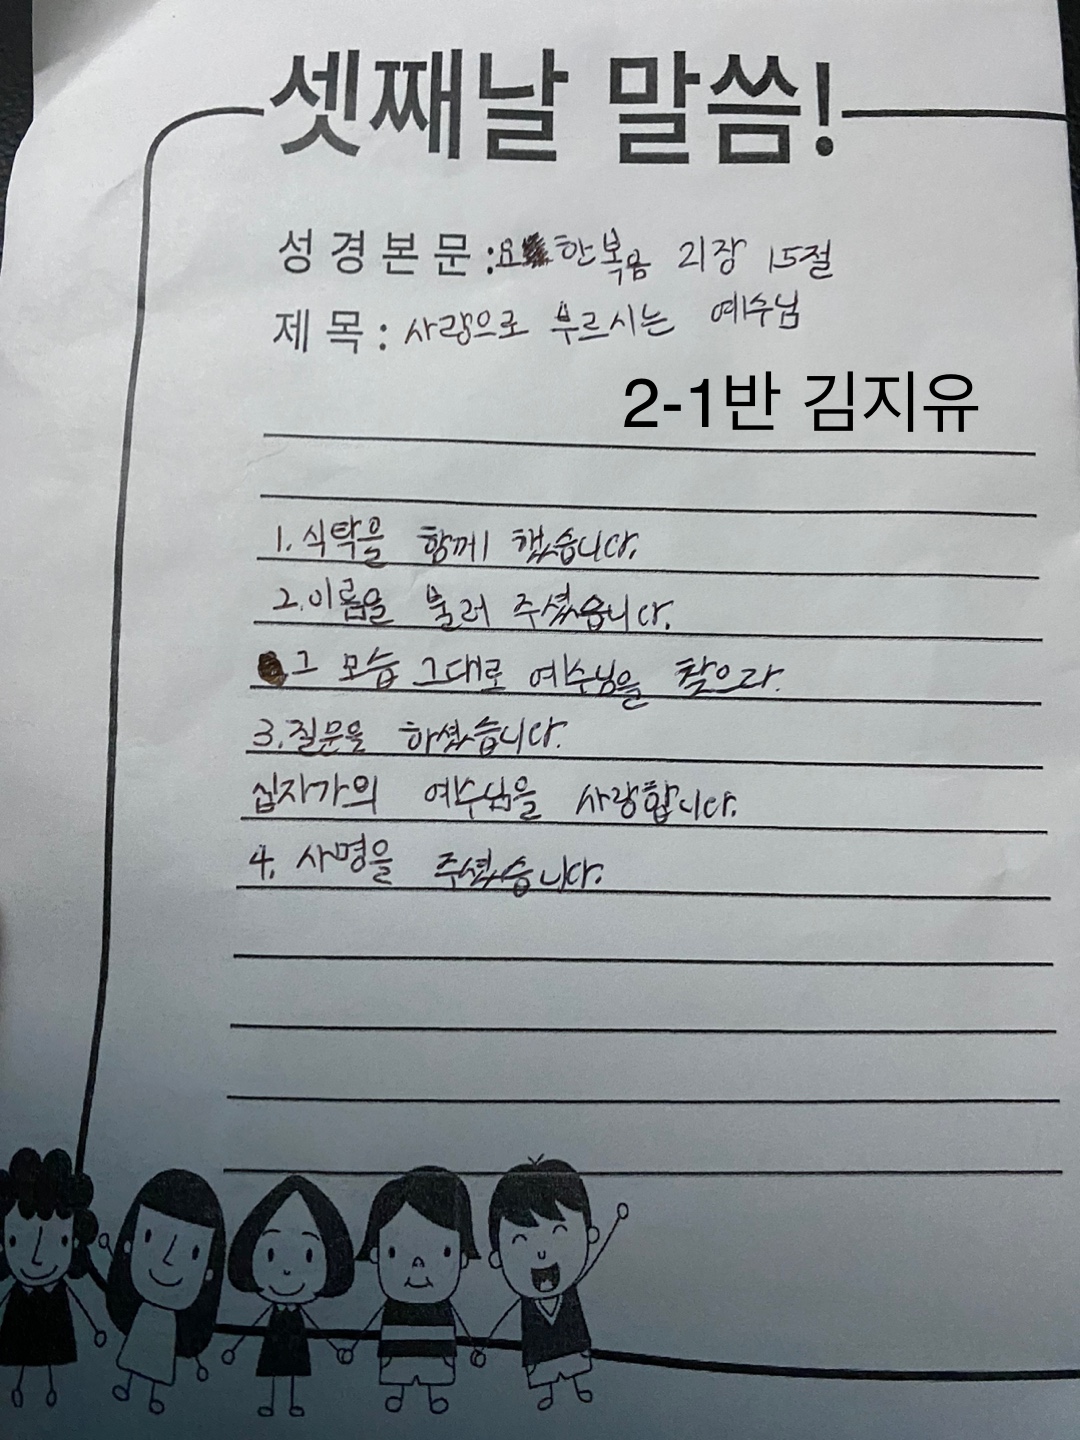 셋째날 말씀!
성경본문 : 요한복음 21장 15절
제목 : 사랑으로 부르시는 예수님
2-1반 김지유
1. 식탁을 함께 했습니다.
2. 이름을 불러 주셨습니다.
그 모습 그대로 예수님을 찾으라.
3. 질문을 하셨습니다.
십자가의 예수님을 사랑합니다.
4. 사명을 주셨습니다.